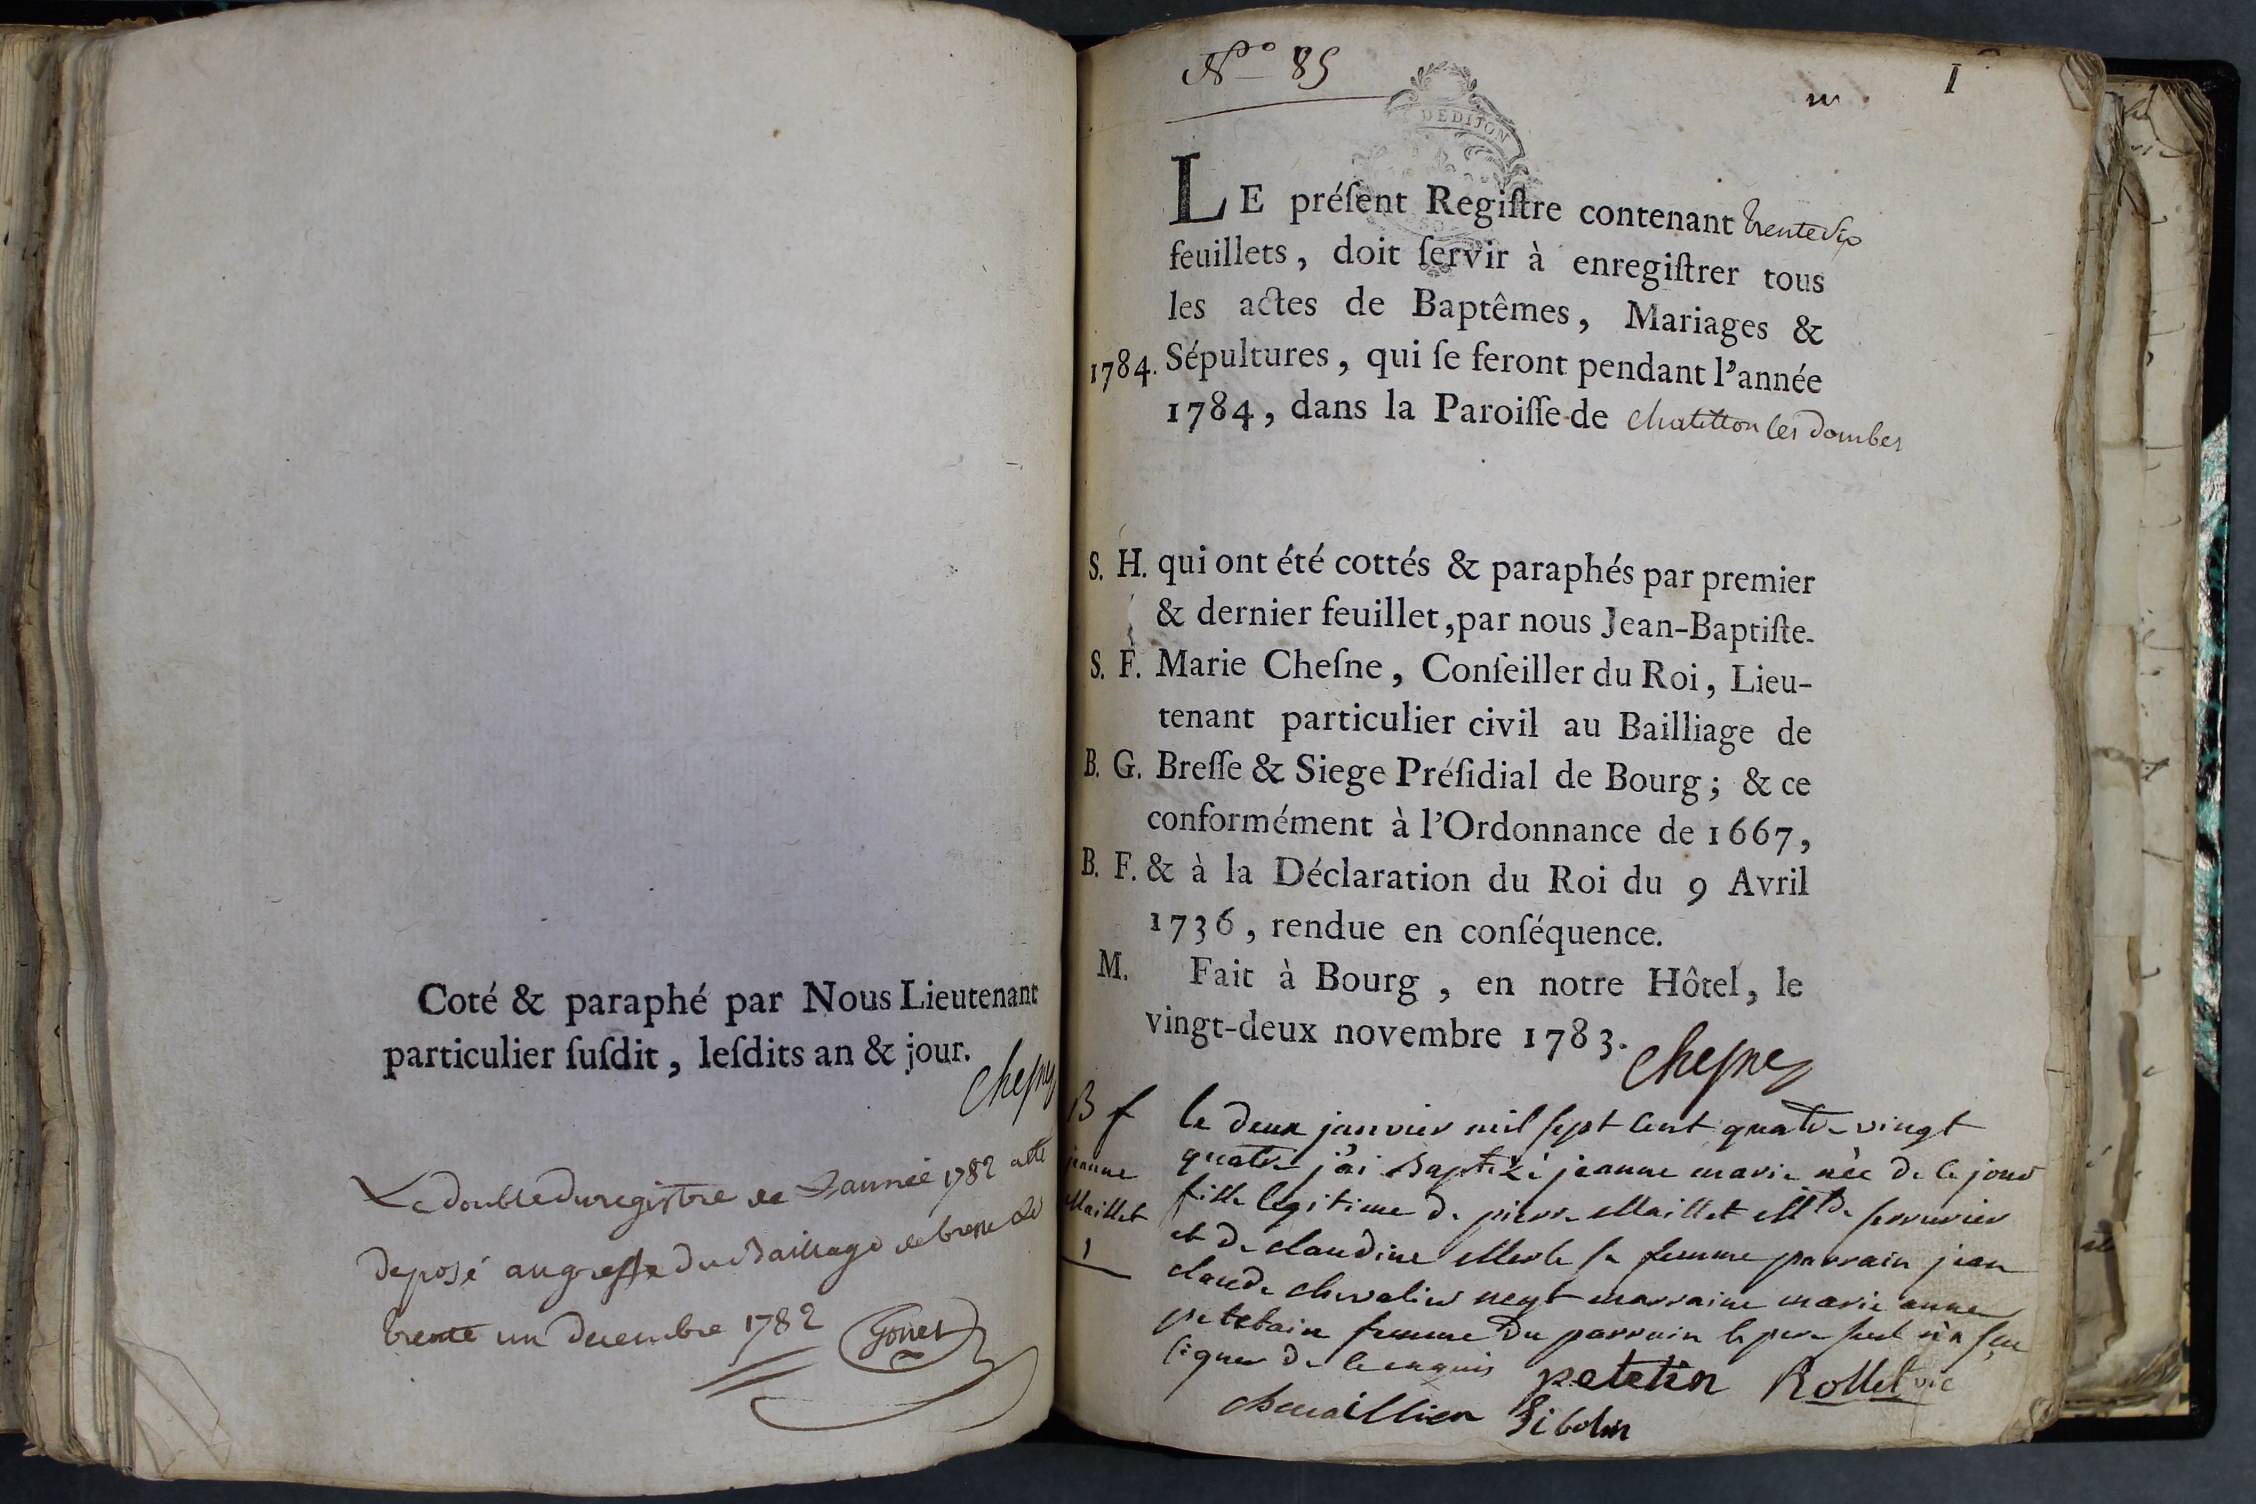 Coté & paraphé par Nous Lieutenant
particulier ſuſdit, leſdits an & jour.
Cheſne
Le double du registre de L'année 1782 a été
deposé au greffe du Bailliage de bresse le
trente un decembre 1782
Gonet
N.° 85
I
DE DIJON
LE préſent Regiſtre contenant trente six
feuillets, doit ſervir à enregiſtrer tous
les actes de Baptêmes, Mariages &
1784. Sépultures, qui ſe feront pendant l'année
1784, dans la Paroiſſe de chatillon les dombes
S. H. qui ont été cottés & paraphés par premier
& dernier feuillet, par nous Jean-Baptiſte-
S. F. Marie Cheſne, Conſeiller du Roi, Lieu-
tenant particulier civil au Bailliage de
B. G. Breſſe & Siege Préſidial de Bourg; & ce
conformément à l'Ordonnance de 1667,
B. F. & à la Déclaration du Roi du 9 Avril
1736, rendue en conſéquence.
M. Fait à Bourg, en notre Hôtel, le
vingt-deux novembre 1783.
Cheſne
B f
jeanne
Maillet
1
le deux janvier mil sept cent quatre vingt
quatre j'ai Baptizé jeanne marie née de ce jour
fille legitime de pierre Maillet Mtre serrurier
et de claudine Merle sa femme parrain jean
claude chevalier negt marraine marie anne
petetain femme du parrain le pere seul n'a sçu
signer de ce enquis
petetin Rollet vic
chevaillier Gibolin